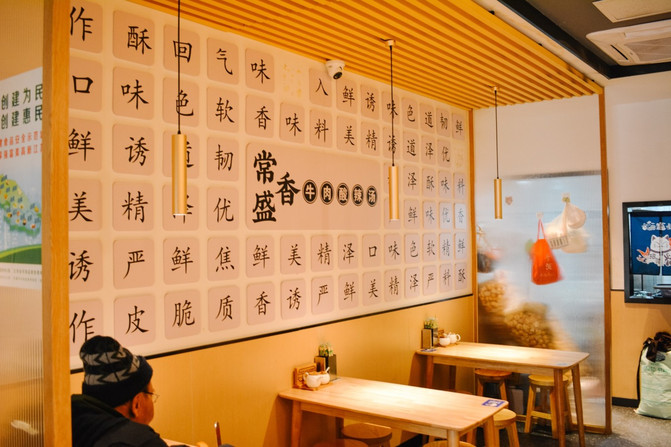 创建为民
创建惠民
作 酥 回 气 味 入 鲜 诱 味 色 道 韧 鲜
口 味 色 软 香 味 料 美 精 诱 道 泽 优
鲜 诱 韧 泽 酥 味 料
美 精 泽 优 鲜 味 优
常香盛
牛肉酸辣汤
诱 严 鲜 焦 鲜 美 精 泽 口 味 色 软 精 鲜
作 皮 脆 质 香 诱 严 鲜 美 精 泽 严 料 酥